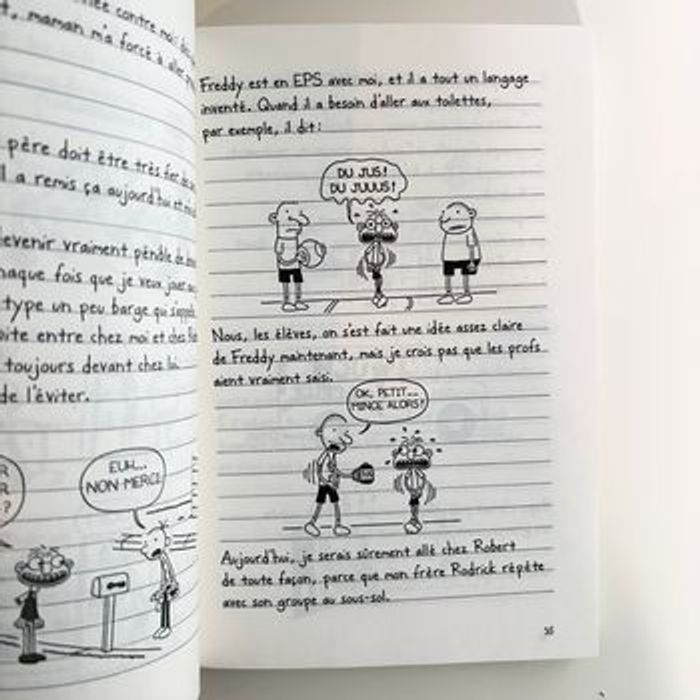 contre moi
, maman m'a forcé à aller
père doit être très fier de
a remis ça aujourd'hui et
devenir vraiment pénible de
chaque fois que je veux jouer
type un peu barge qui s'appelle
entre chez moi et chez
toujours devant chez lui
de l'éviter.
EUH...
NON MERCI.
Freddy est en EPS avec moi, et il a tout un langage
inventé. Quand il a besoin d'aller aux toilettes,
par exemple, il dit :
DU JUS!
DU JUUUS!
Nous, les élèves, on s'est fait une idée assez claire
de Freddy maintenant, mais je crois pas que les profs
aient vraiment saisi.
OK, PETIT...
MINCE ALORS!
Aujourd'hui, je serais sûrement allé chez Robert
de toute façon, parce que mon frère Rodrick répète
avec son groupe au sous-sol.